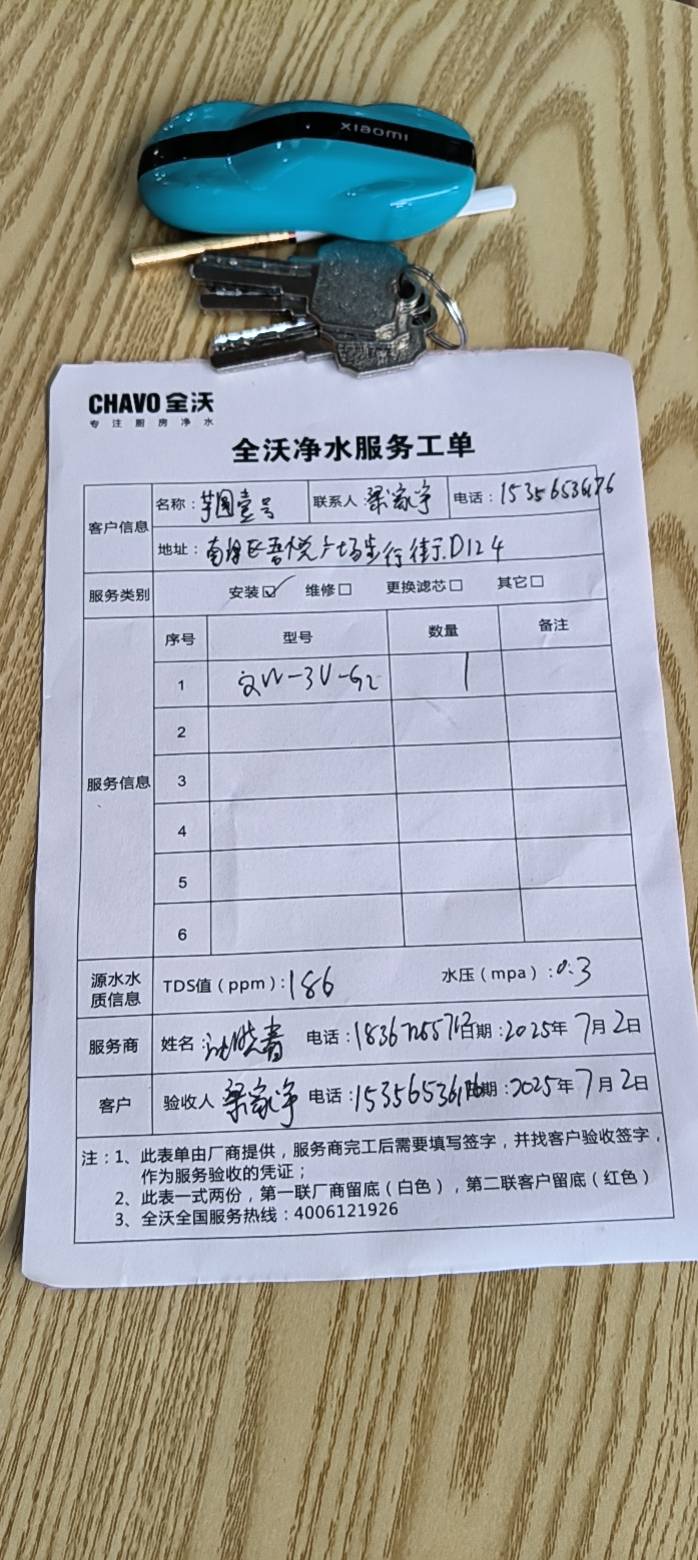 xiaomi
CHAVO 全沃
专注厨房净水
全沃净水服务工单
客户信息
名称：芋圆壹号 联系人 梁家宇 电话：15356536176
地址：南浔区吾悦广场步行街D124
服务类别 安装☑ 维修□ 更换滤芯□ 其它□
服务信息
序号 型号 数量 备注
1 QW-3U-G2 1
2
3
4
5
6
源水水质信息 TDS值（ppm）：186 水压（mpa）：0.3
服务商 姓名： 电话： 日期：2025年7月2日
客户 验收人 梁家宇 电话：15356536176 日期：2025年7月2日
注：1、此表单由厂商提供，服务商完工后需要填写签字，并找客户验收签字，
作为服务验收的凭证；
2、此表一式两份，第一联厂商留底（白色），第二联客户留底（红色）
3、全沃全国服务热线：4006121926